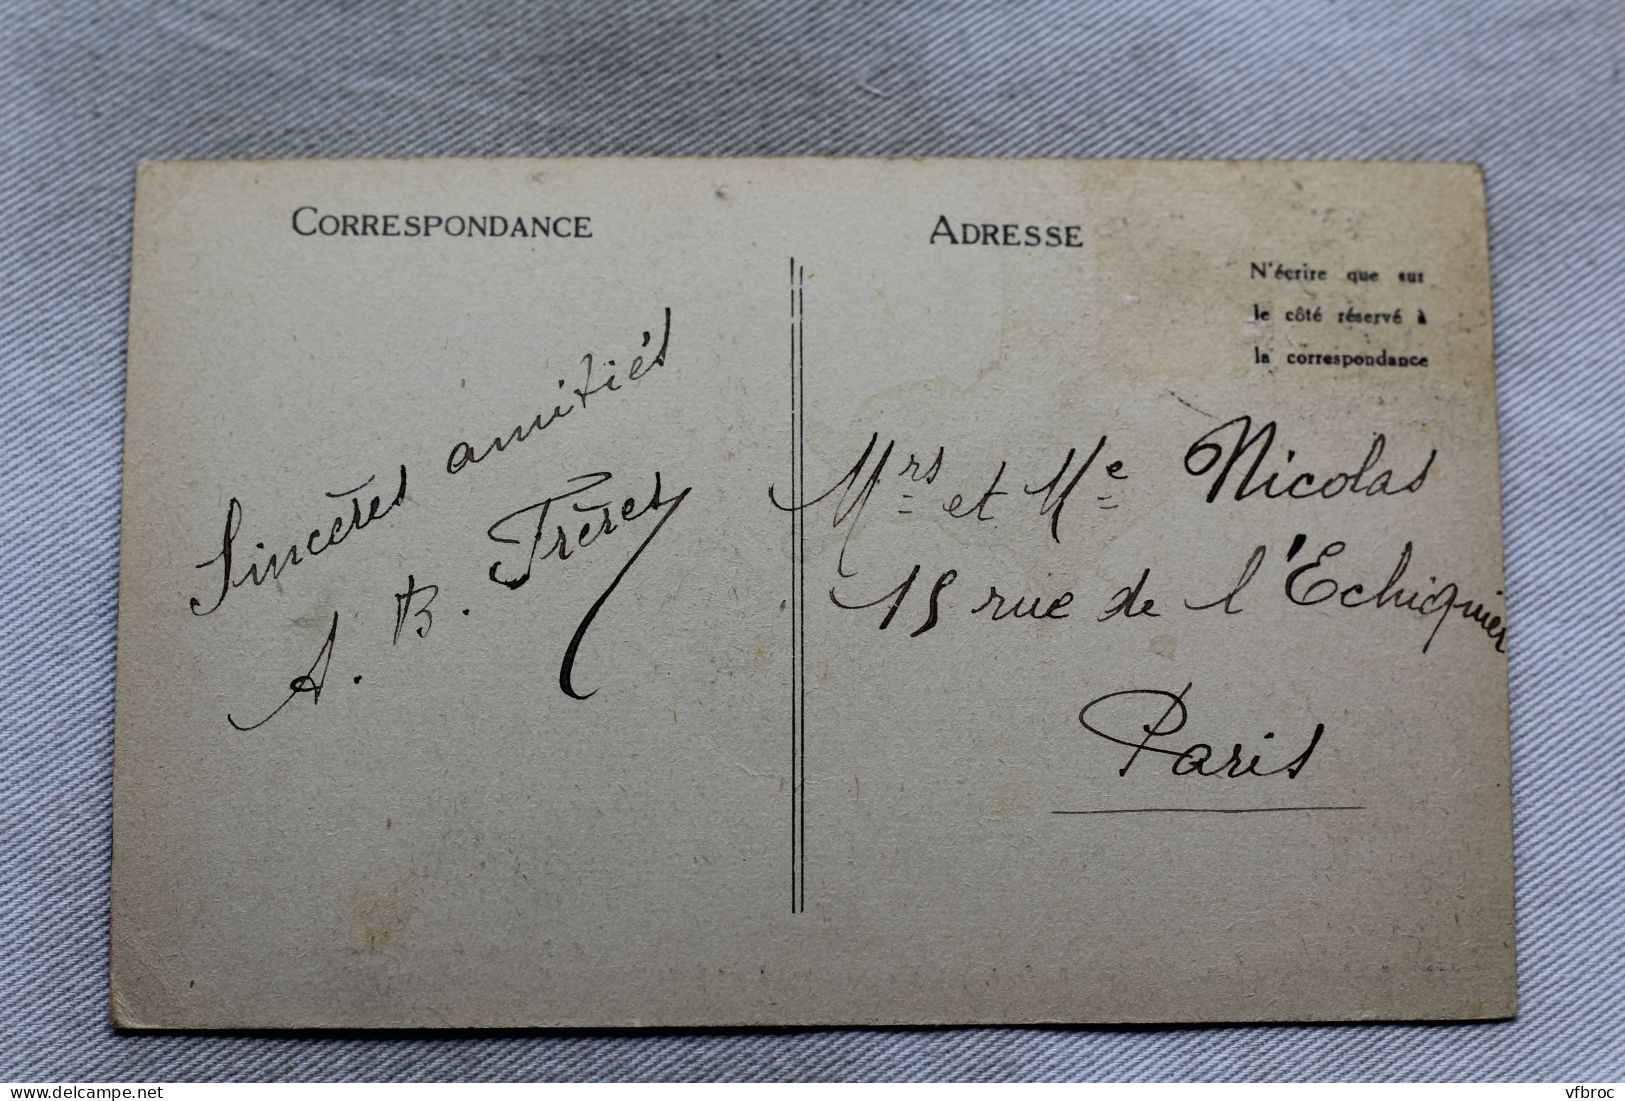 CORRESPONDANCE
Sincères amitiés
A. B. Frères
ADRESSE
N'écrire que sur
le côté réservé à
la correspondance
Mrs et Me Nicolas
15 rue de l'Echiquier
Paris
www.delcampe.net
vfbroc